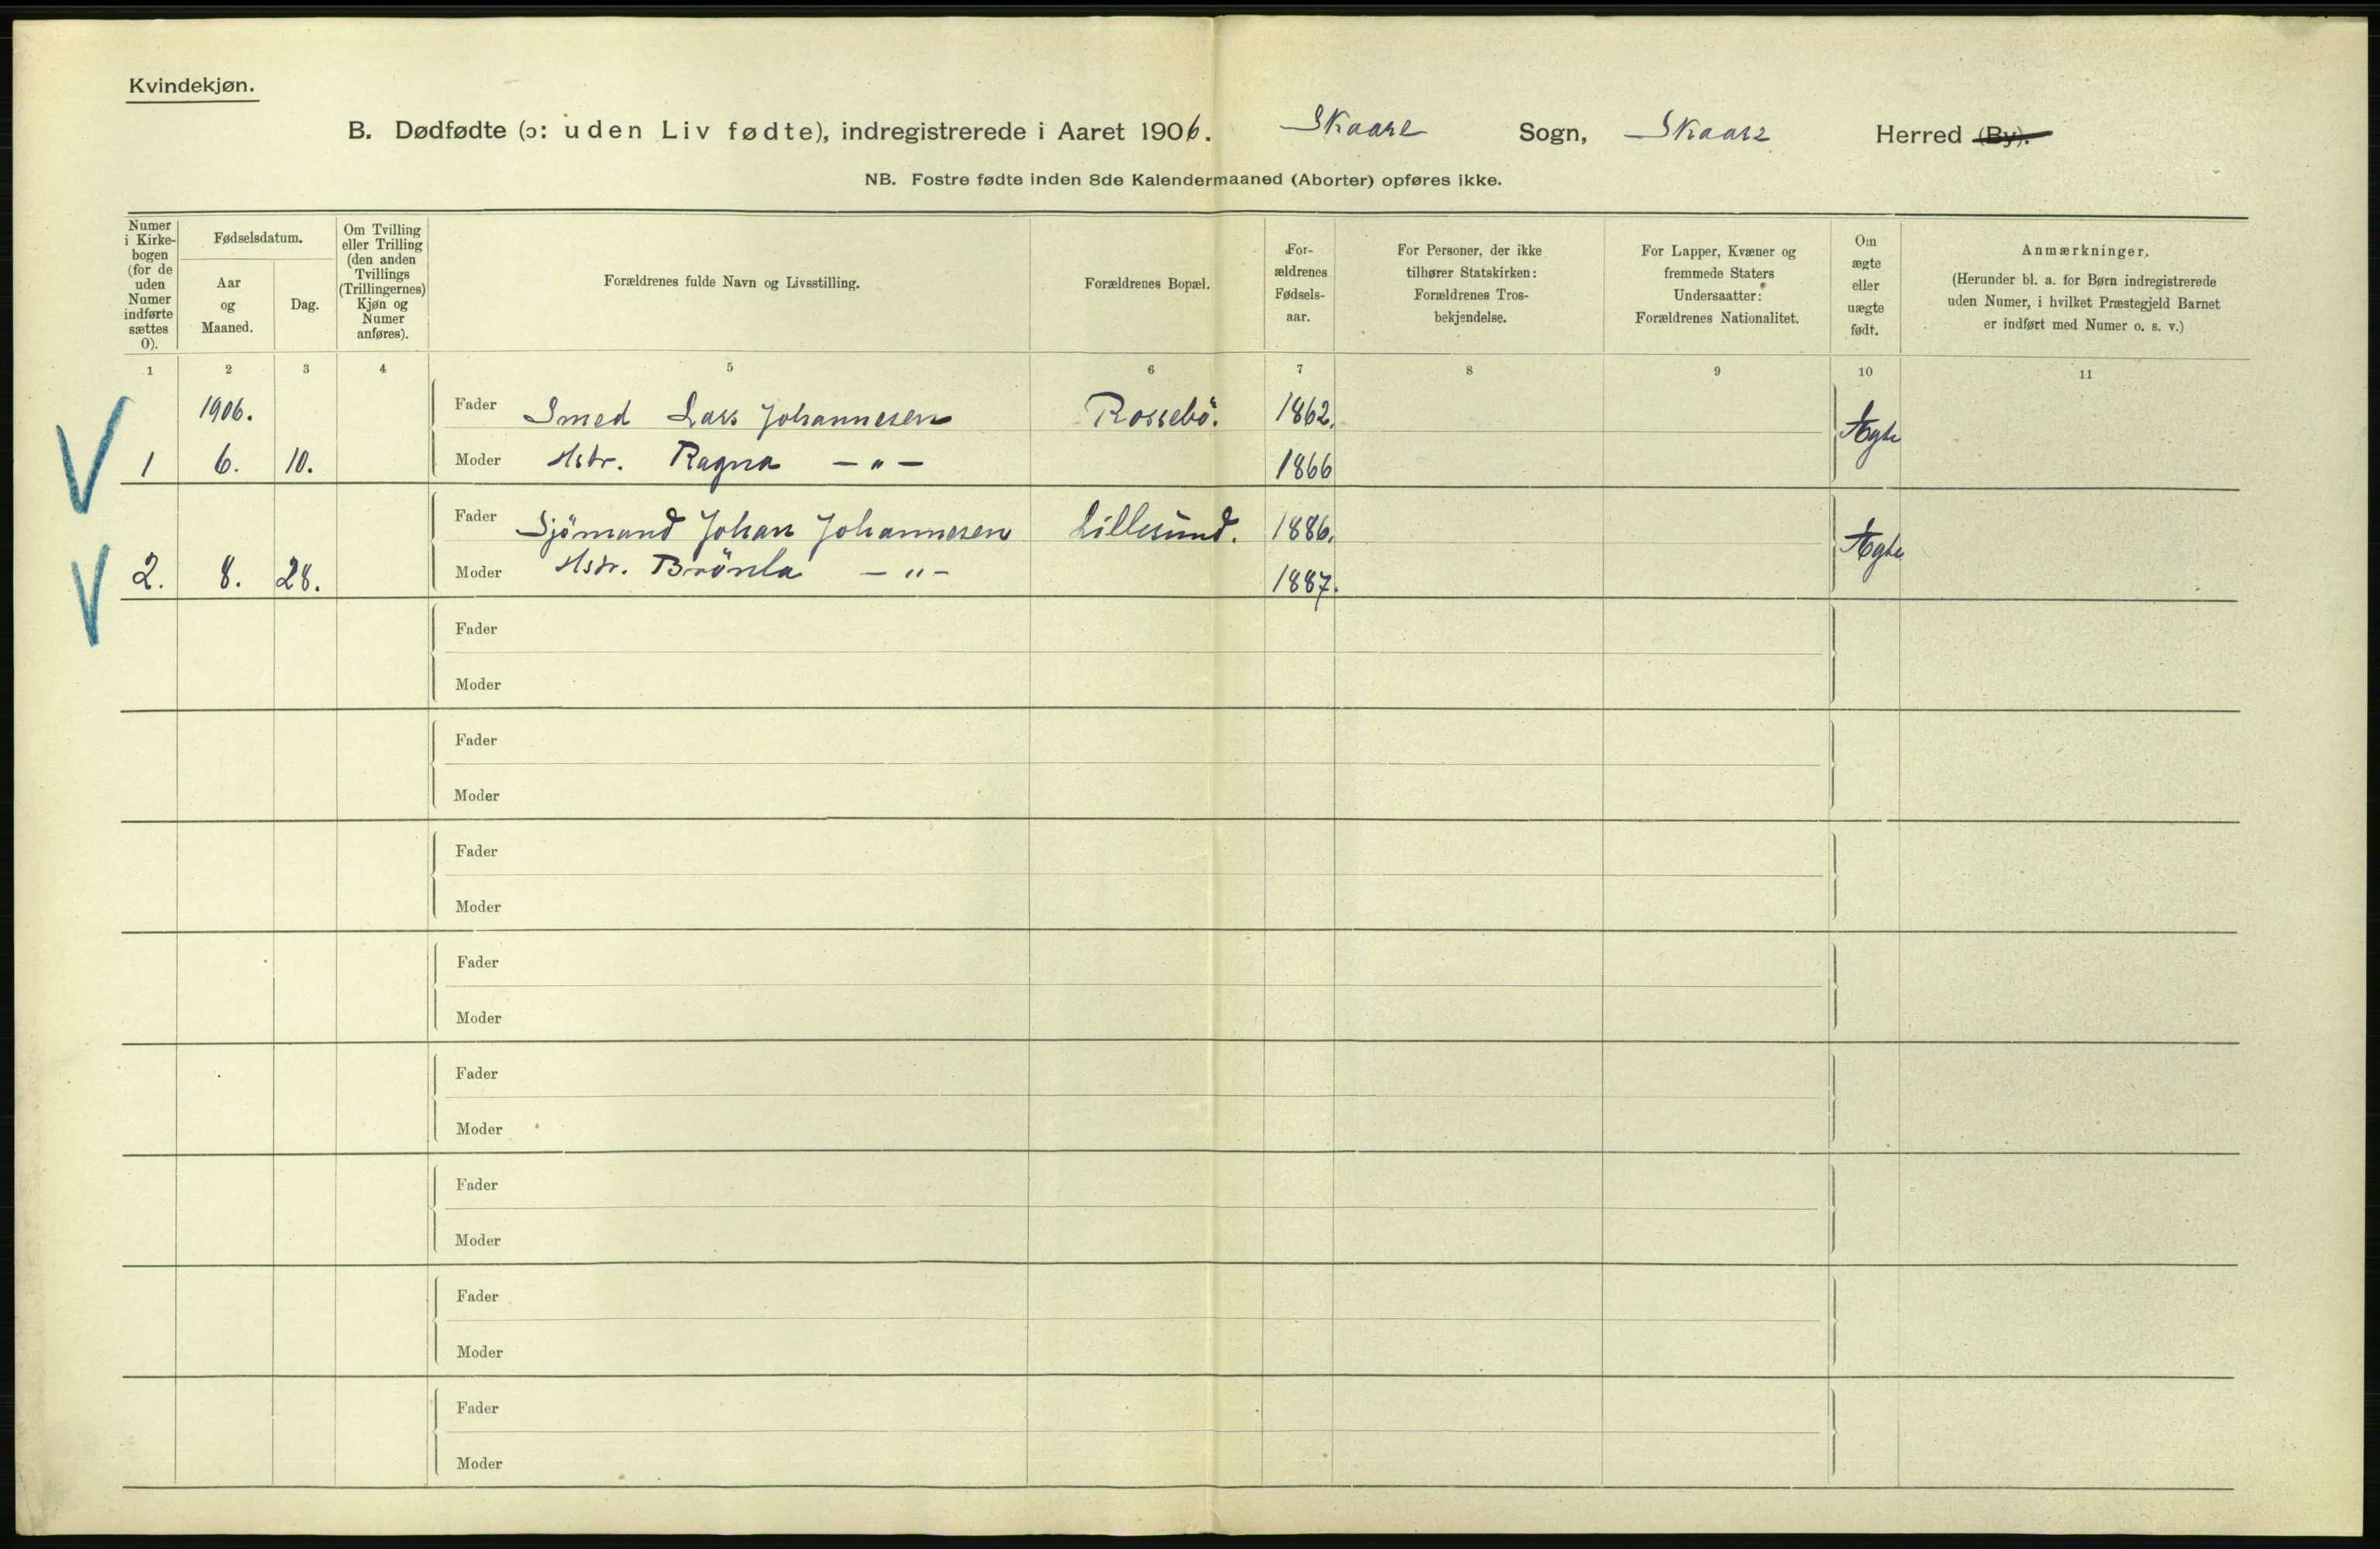 Kvindekjøn.
B. Dødfødte (ɔ: uden Liv fødte), indregistrerede i Aaret 1906. Skaare Sogn, Skaare Herred (By).
NB. Fostre fødte inden 8de Kalendermaaned (Aborter) opføres ikke.
Numer
i Kirke-
bogen
(for de
uden
Numer
indførte
sættes
0).
Fødselsdatum.
Aar
og
Maaned.
Dag.
Om Tvilling
eller Trilling
(den anden
Tvillings
(Trillingernes)
Kjøn og
Numer
anføres).
Forældrenes fulde Navn og Livsstilling.
Forældrenes Bopæl.
For-
ældrenes
Fødsels-
aar.
For Personer, der ikke
tilhører Statskirken:
Forældrenes Tros-
bekjendelse.
For Lapper, Kvæner og
fremmede Staters
Undersaatter:
Forældrenes Nationalitet.
Om
ægte
eller
uægte
født.
Anmærkninger.
(Herunder bl. a. for Børn indregistrerede
uden Numer, i hvilket Præstegjeld Barnet
er indført med Numer o. s. v.)
1 2 3 4 5 6 7 8 9 10 11
1906. Fader Smed Lars Johannesen Rossebö. 1862. Ægte
1 6. 10. Moder Hstr. Ragna — " — 1866
Fader Sjömand Johan Johannesen Lillesund. 1886. Ægte
2. 8. 28. Moder Hstr. — " — 1887.
Fader
Moder
Fader
Moder
Fader
Moder
Fader
Moder
Fader
Moder
Fader
Moder
Fader
Moder
Fader
Moder